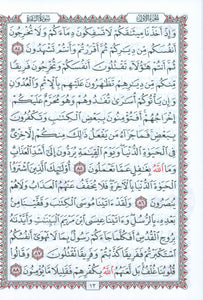 الجزء الأول سورة البقرة
وَإِذْ أَخَذْنَا مِيثَٰقَكُمْ لَا تَسْفِكُونَ دِمَآءَكُمْ وَلَا تُخْرِجُونَ
أَنفُسَكُم مِّن دِيَٰرِكُمْ ثُمَّ أَقْرَرْتُمْ وَأَنتُمْ تَشْهَدُونَ ٨٤
ثُمَّ أَنتُمْ هَٰٓؤُلَآءِ تَقْتُلُونَ أَنفُسَكُمْ وَتُخْرِجُونَ فَرِيقًا
مِّنكُم مِّن دِيَٰرِهِمْ تَظَٰهَرُونَ عَلَيْهِم بِٱلْإِثْمِ وَٱلْعُدْوَٰنِ
وَإِن يَأْتُوكُمْ أُسَٰرَىٰ تُفَٰدُوهُمْ وَهُوَ مُحَرَّمٌ عَلَيْكُمْ
إِخْرَاجُهُمْ أَفَتُؤْمِنُونَ بِبَعْضِ ٱلْكِتَٰبِ وَتَكْفُرُونَ
بِبَعْضٍ فَمَا جَزَآءُ مَن يَفْعَلُ ذَٰلِكَ مِنكُمْ إِلَّا خِزْىٌ
فِى ٱلْحَيَوٰةِ ٱلدُّنْيَا وَيَوْمَ ٱلْقِيَٰمَةِ يُرَدُّونَ إِلَىٰٓ أَشَدِّ ٱلْعَذَابِ
وَمَا ٱللَّهُ بِغَٰفِلٍ عَمَّا تَعْمَلُونَ ٨٥ أُو۟لَٰٓئِكَ ٱلَّذِينَ ٱشْتَرَوُا۟
ٱلْحَيَوٰةَ ٱلدُّنْيَا بِٱلْءَاخِرَةِ فَلَا يُخَفَّفُ عَنْهُمُ ٱلْعَذَابُ وَلَا هُمْ
يُنصَرُونَ ٨٦ وَلَقَدْ ءَاتَيْنَا مُوسَى ٱلْكِتَٰبَ وَقَفَّيْنَا مِنۢ
بَعْدِهِۦ بِٱلرُّسُلِ وَءَاتَيْنَا عِيسَى ٱبْنَ مَرْيَمَ ٱلْبَيِّنَٰتِ وَأَيَّدْنَٰهُ
بِرُوحِ ٱلْقُدُسِ أَفَكُلَّمَا جَآءَكُمْ رَسُولٌۢ بِمَا لَا تَهْوَىٰٓ أَنفُسُكُمُ
ٱسْتَكْبَرْتُمْ فَفَرِيقًا كَذَّبْتُمْ وَفَرِيقًا تَقْتُلُونَ ٨٧ وَقَالُوا۟
قُلُوبُنَا غُلْفٌۢ بَل لَّعَنَهُمُ ٱللَّهُ بِكُفْرِهِمْ فَقَلِيلًا مَّا يُؤْمِنُونَ ٨٨
١٣